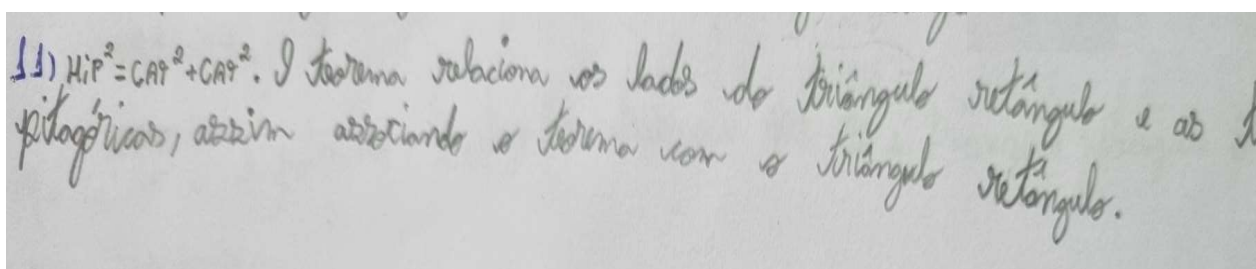 11) HiP²=CAT²+CAT². O teorema relaciona os lados do triângulo retângulo e as
pitagóricas, assim associando o teorema com o triângulo retângulo.